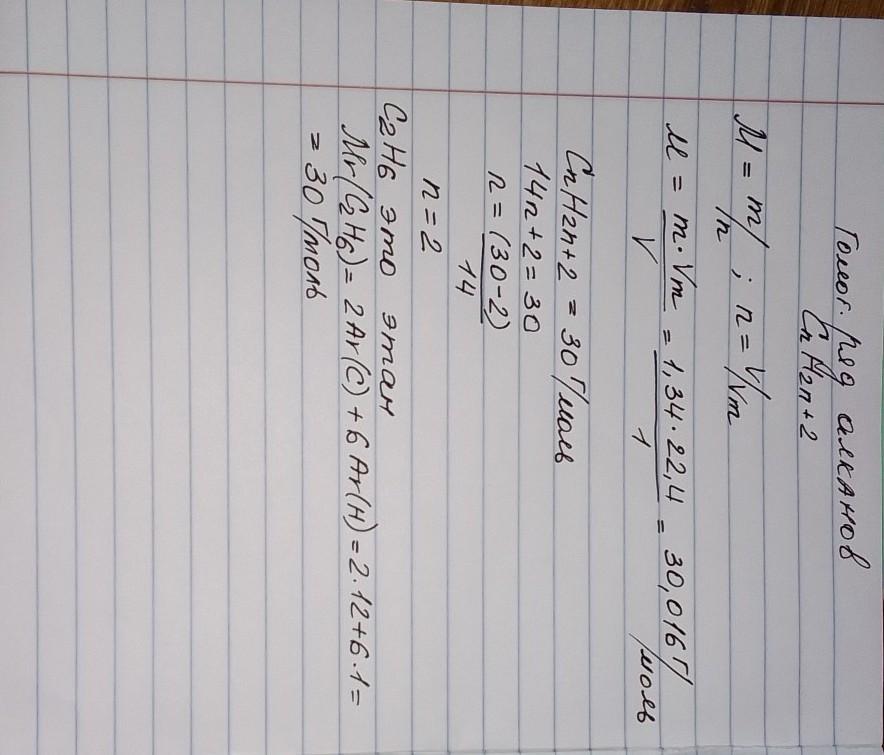 Гомог. ряд алканов
CnH2n+2
M = m/n ; n = V/Vm
M = m·Vm/V = 1,34·22,4/1 = 30,016 г/моль
CnH2n+2 = 30 г/моль
14n+2 = 30
n = (30-2)/14
n = 2
C2H6 это этан
Mr(C2H6) = 2Ar(C) + 6Ar(H) = 2·12+6·1 =
= 30 г/моль